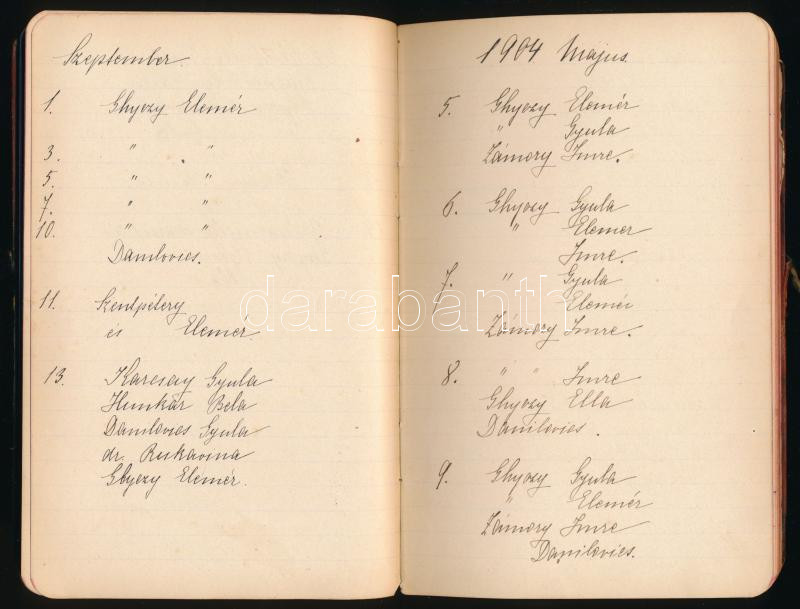 Szeptember.
1. Ghyczy Elemér
3. " "
5. " "
7. " "
10. " "
Danilovics.
11. Szentpétery
és Elemér
13. Karcsay Gyula
Hunkár Béla
Danilovics Gyula
dr. Rukavina
Ghyczy Elemér.
1904 Majus.
5. Ghyczy Elemér
" Gyula
Zámory Imre.
6. Ghyczy Gyula
" Elemer
Imre.
7. " Gyula
Elemér
Zámory Imre.
8. " " Imre
Ghyczy Ella
Danilovics.
9. Ghyczy Gyula
" Elemér
Zámory Imre
Danilovics.
darabanth.com